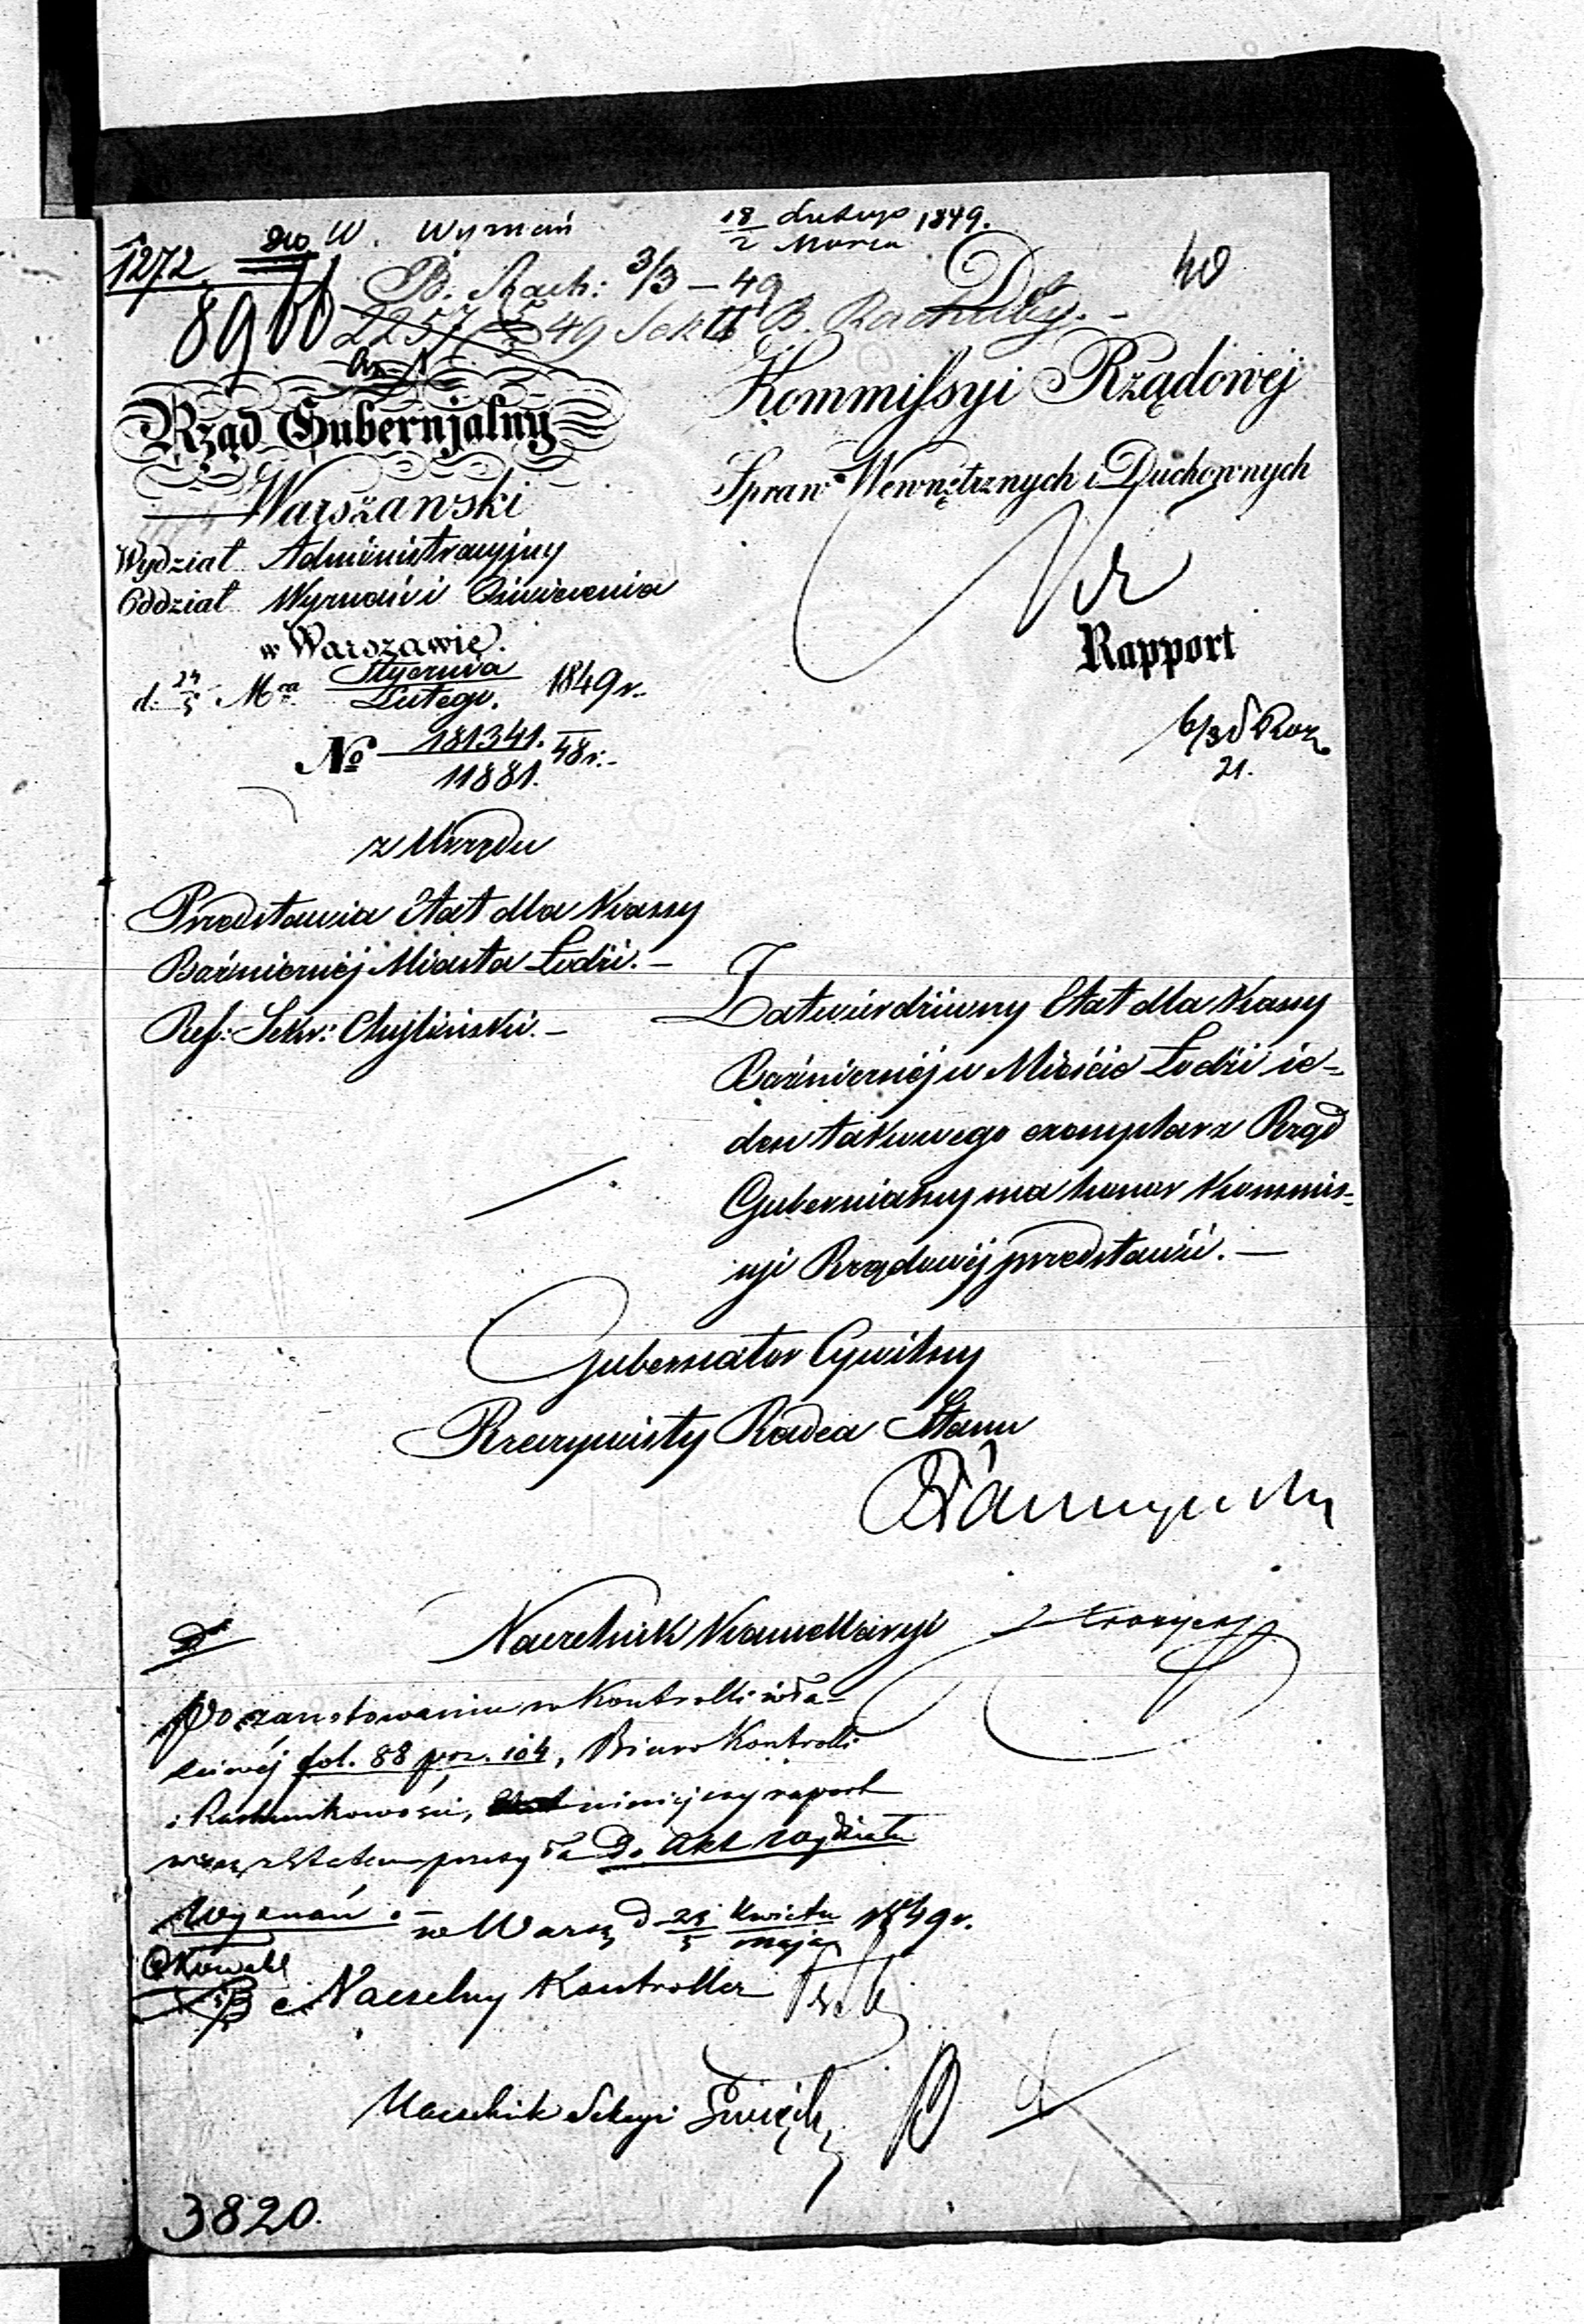 W. Wyznań 18/2 Lutego/Marca 1849.
1272.
B. Rach: 3/3 – 49
40
2257 49 Sekt B. Rachuby.
Rząd Gubernjalny
Warszawski
Wydział Administracyjny
Oddział Wyznań i Oświecenia
w Warszawie.
d: 24/5 Mca Stycznia/Lutego. 1849 r.
No 181341./11881. 48r.
Kommissyi Rządowej
Spraw Wewnętrznych i Duchownych
Rapport
21.
z Urzędu
Przedstawia Etat dla Kassy
Bóźnicznéj Miasta Łodzi.–
Ref: Sekr: Chyliński.–
Zatwierdziwszy Etat dla Kassy
Bóźnicznéj w Mieście Łodzi ie-
den takowego exemplarz Rząd
Gubernialny ma honor Kommis-
syi Rządowéj przedstawić.–
Gubernator Cywilny
Rzeczywisty Radca Stanu
Naczelnik Kancellaryi
Po zanotowaniu w Kontrolli wła-
ściwéj fol. 88 poz. 104, Biuro Kontrolli
i Rachunkowości, niniejszy raport
wraz z Etatem przesyła Do Akt Wydziału
Wyznań.– w Warsz d 23/5 Kwiet/Maja 1849 r.
Naczelny Kontroller
Naczelnik Sekcyi
3820.